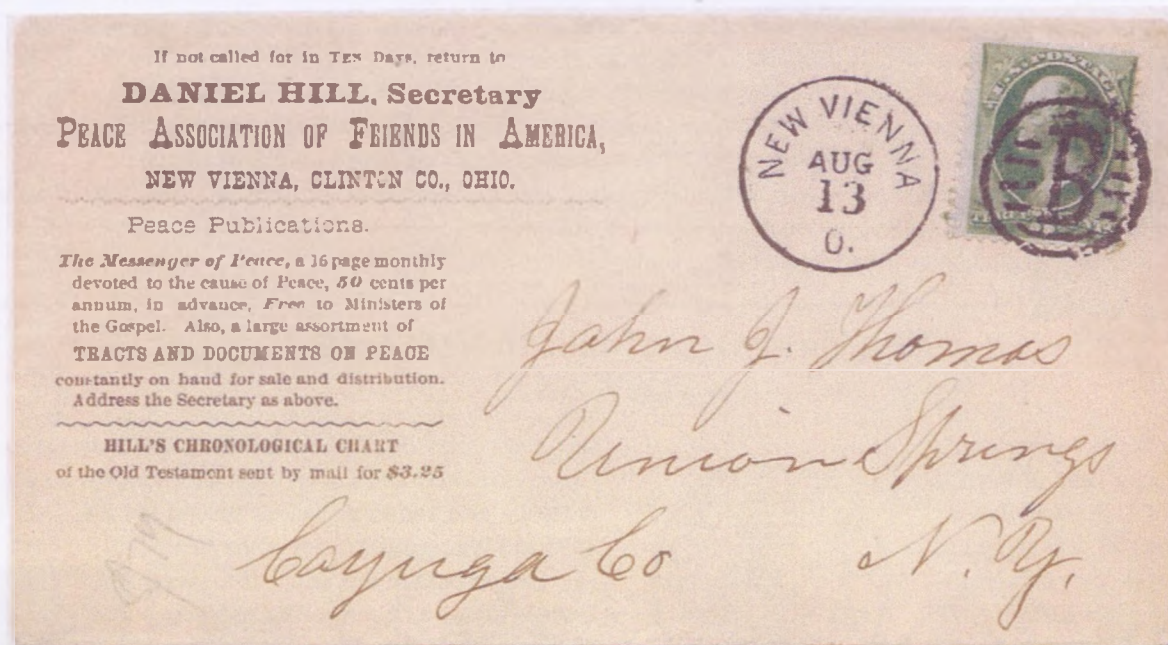 If not called for in TEN DAYS, return to
DANIEL HILL, Secretary
PEACE ASSOCIATION OF FRIENDS IN AMERICA,
NEW VIENNA, CLINTON CO., OHIO.
Peace Publications.
The Messenger of Peace, a 16 page monthly
devoted to the cause of Peace, 50 cents per
annum, in advance, Free to Ministers of
the Gospel. Also, a large assortment of
TRACTS AND DOCUMENTS ON PEACE
constantly on hand for sale and distribution.
Address the Secretary as above.
HILL'S CHRONOLOGICAL CHART
of the Old Testament sent by mail for $3.25
NEW VIENNA
AUG
13
O.
U.S. POSTAGE
B
John J. Thomas
Union Springs
Cayuga Co N. Y.